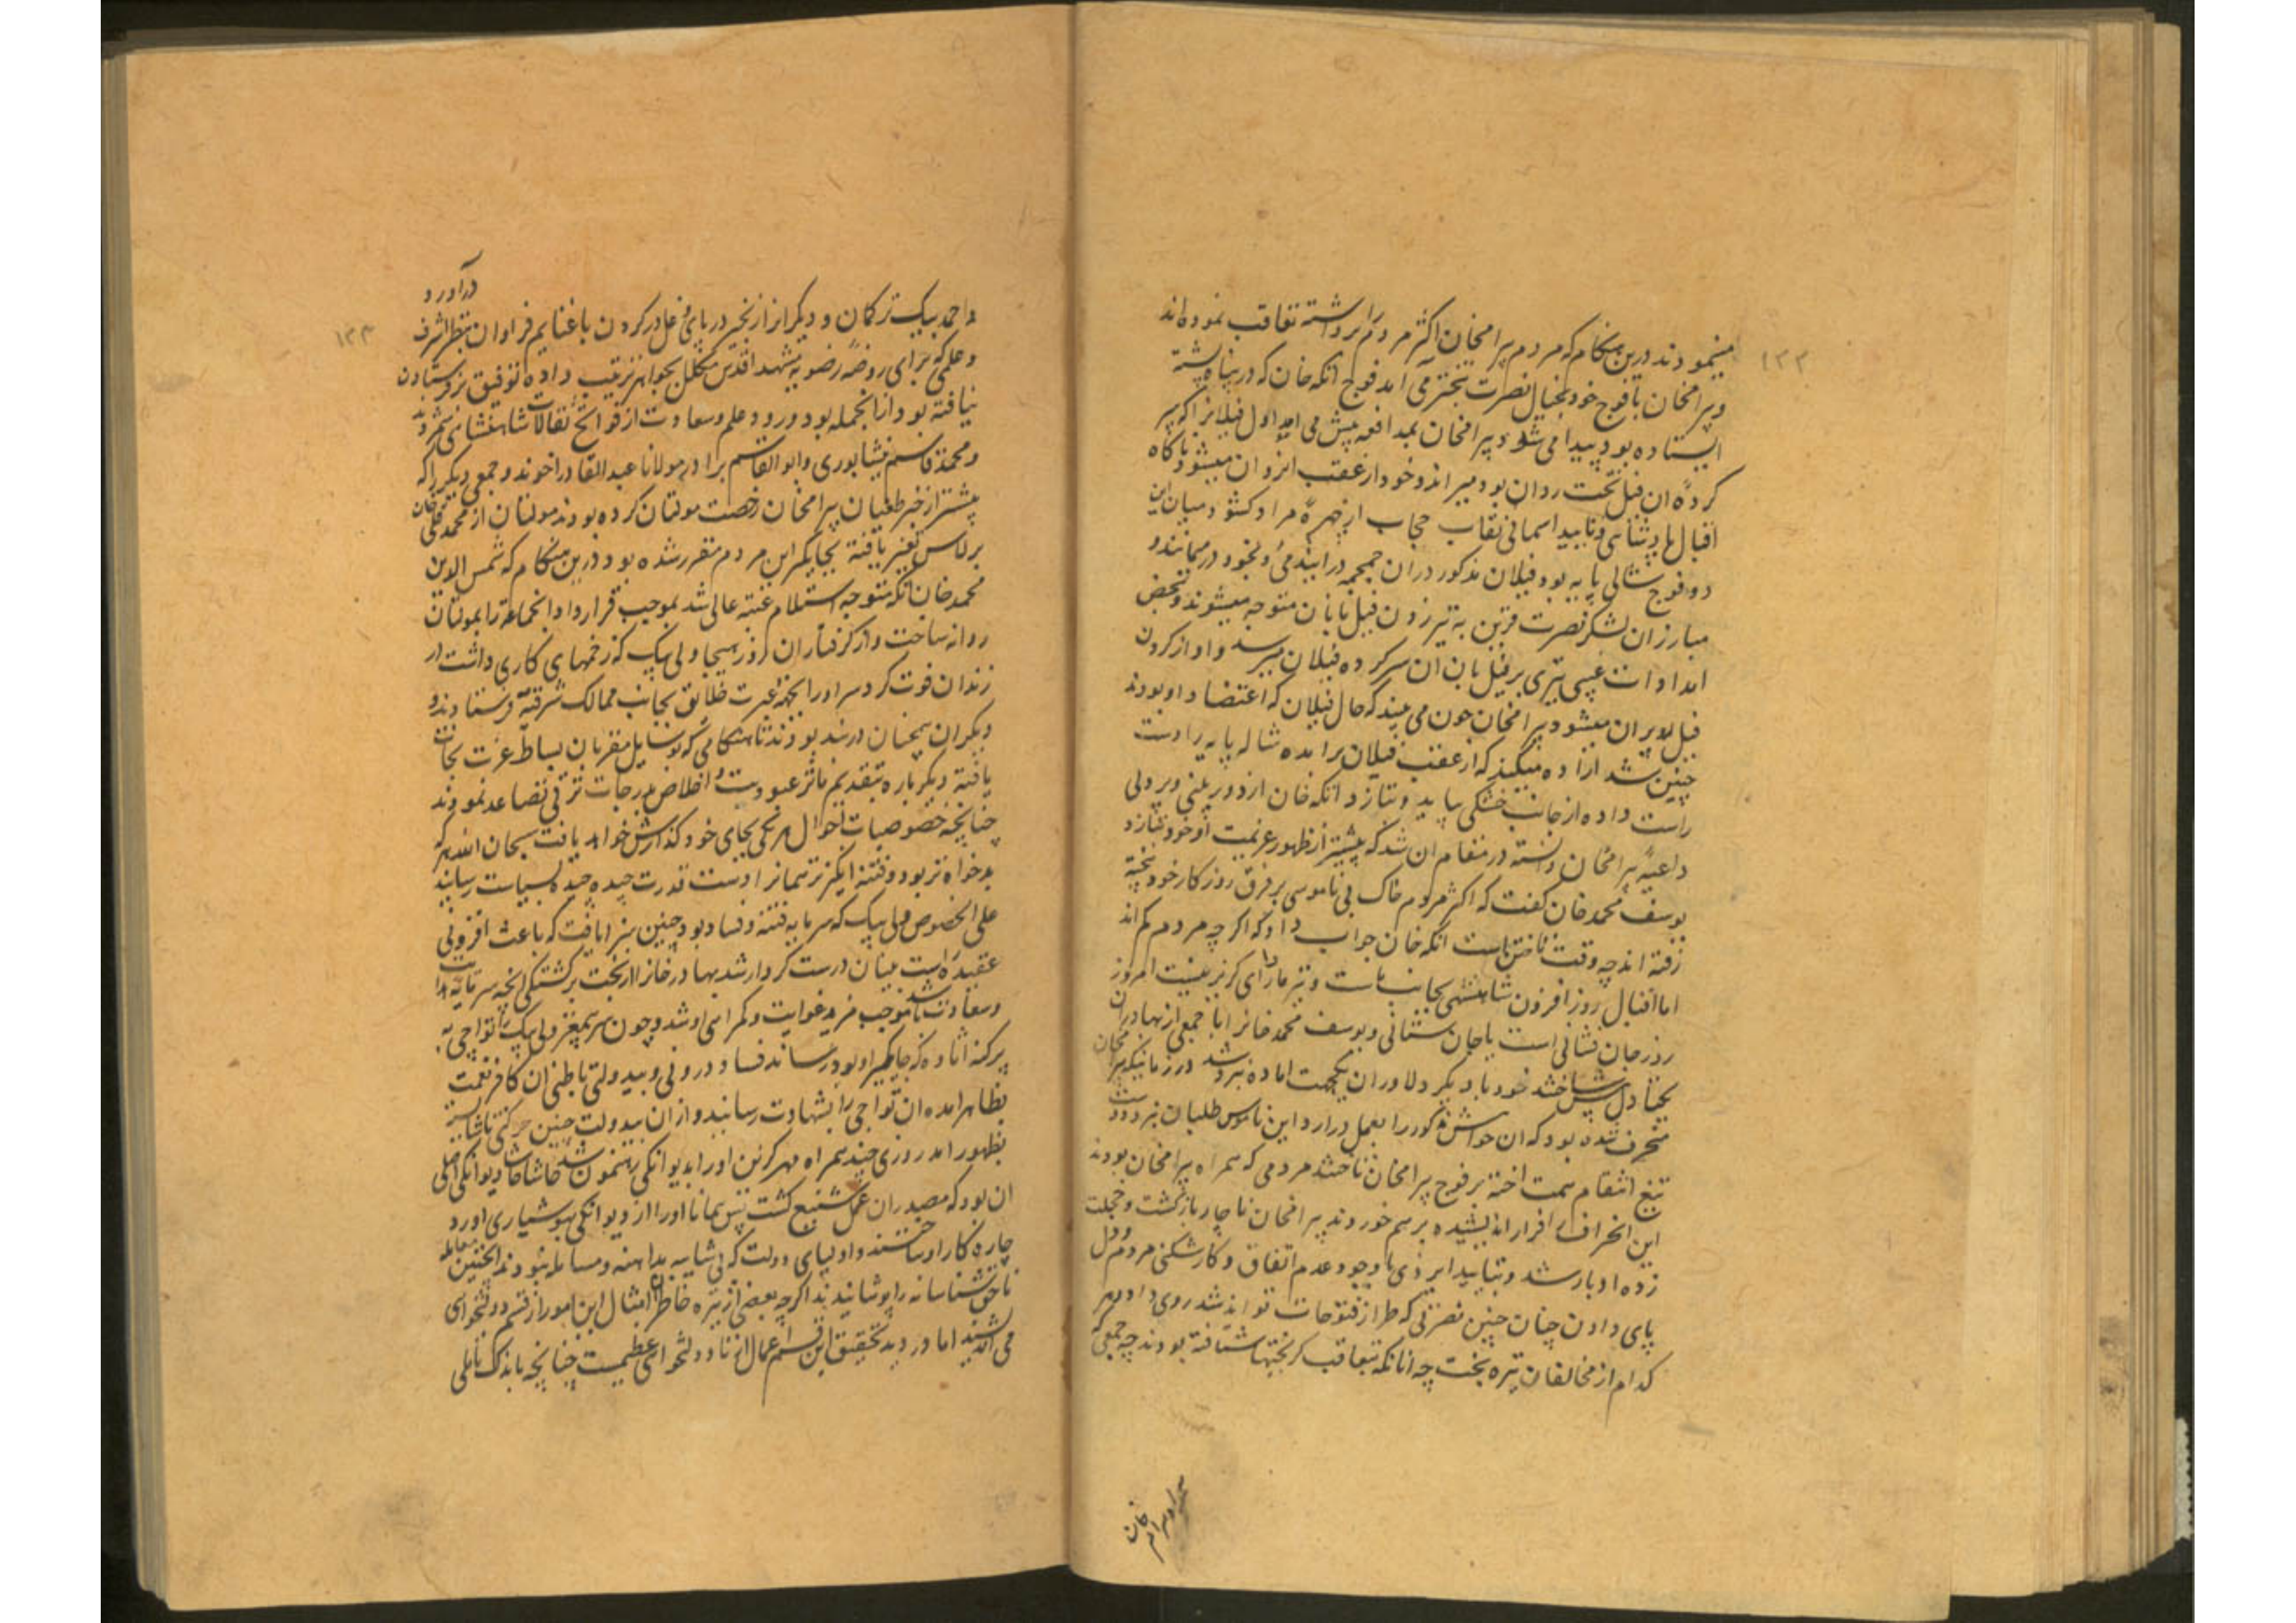 ۱۲۲
مینمودند درین هنگام که مردم بیرامخان اکثر مردم را برداشته تعاقب نموده‌اند
و بیرامخان با فوج خود بخیال نصرت بتختر می امد فوج اتکه خان که در پناه پشته
ایستاده بود پیدا می شود و بیرامخان بمدافعه پیش می اید اول فیلانرا که سر
کردهٔ ان فیل تخت روان بود میراند و خود از عقب انروان میشود ناکاه
اقبال پادشاهی و تایید اسمانی نقاب حجاب از چهرهٔ مراد کشود میان این
دو فوج شالی پایه بود فیلان مذکور دران جمجمه درایند می و بخود درمیمانند و
مبارزان لشکر نصرت قرین به تیر زدن فیل بانان متوجه میشوند و بمحض
امدادات غیبی تیری بر فیل بان ان سر کرده فیلان میرسد و او از کردن
فیل اویزان میشود بیرامخان چون می بیند که حال فیلان که اعتضاد او بودند
چنین شد اراده میکند که از عقب فیلان برامده شاله پایه را دست
راست داده از جانب خشکی بیاید و بتازد اتکه خان از دوربینی و پردلی
داعیهٔ بیرامخان دانسته در مقام ان شد که پیشتر از ظهور عزیمت او خود بتازد
یوسف محمد خان کفت که اکثر مردم خاک بی ناموسی بر فرق روزکار خود بیخته
رفته اند چه وقت تاختن است اتکه خان جواب داد که اکرچه مردم کم اند
اما اقبال روز افزون شاهنشهی بجانب ماست و نیز ما را رای کریز نیست امروز
روز جان فشانی است یا جان ستانی و یوسف محمد خانرا با جمعی از بهادران
یکتا دل پیش ساختند خود با دیکر دلاوران یکجهت اماده نبرد شد در زمانیکه بیرامخان
منحرف شده بود که ان حواشی مذکور را بعمل درارد این ناموس طلبان نبرد دوست
تیغ انتقام همت اخته بر فوج بیرامخان تاختند مردمی که همراه بیرامخان بودند
این انحراف را فرار اندیشیده برهم خوردند بیرامخان ناچار بازکشت و خجلت
زده ادبار شد و بتایید ایزدی با وجود عدم اتفاق و کارشکنی مردم و دل
پای دادن چنان چنین نصرتی که طراز فتوحات تواند شد روی داد و هر
کدام از مخالفان تیره بخت چه انانکه بتعاقب کریختها شتافته بودند چه جمعی که
۱۲۳
دراورد
و احمد بیک ترکمان و دیکرانرا زنجیر در پای و غل در کردن با غنایم فراوان بنظر اشرف
و علمی که برای روضهٔ رضویه مشهد اقدس مکلل بجواهر ترتیب داده توفیق فرستادن
نیافته بود از انجمله بود ورود علم و سعادت از فواتح تفالات شاهنشاهی شمردند
و محمد قاسم نیشابوری و ابو القاسم برادر مولانا عبدالقادر اخوند و جمعی دیکر را که
پیشتر از خبر طغیان بیرامخان رخصت مولتان کرده بودند مولتان از محمد قلی خان
برلاس تغیر یافته بجایکیر این مردم مقرر شده بود درین هنکام که شمس الدین
محمد خان اتکه متوجه استلام عتبه عالی شد بموجب قرارداد انجماعه را بمولتان
روانه ساخت و از کرفتاران روز هیجا ولی بیک که زخمهای کاری داشت در
زندان فوت کرد سر اورا بجهة عبرت خلائق بجانب ممالک شرقیه فرستادند و
دیکران همچنان در بند بودند تا هنکامی که بوسایل مقربان بساط عزت نجات
یافته دیکر باره بتقدیم ماثر عبودیت و اخلاص بدرجات ترقی تصاعد نمودند
چنانچه خصوصیات احوال هر یکی بجای خود کذارش خواهد یافت سبحان الله هر که
بدخواه‌تر بود و فتنه انکیزتر همانرا دست قدرت چیده چیده بسیاست رسانید
علی الخصوص ولی بیک که سرمایه فتنه و فساد بود چنین سزا یافت که باعث افزونی
عقیده راست بینان درست کردار شد بهادر خانرا از بخت برکشتکی انچه سرمایه هدایت
و سعادت باشد موجب مزید غوایت و کمراهی او شد و چون سر بیمغز ولی بیک را تواچی به
پرکنه اتاوه که جایکیر او بود رساند فساد درونی و بیدولتی باطنی ان کافر نعمت
بظاهر امده ان تواچی را بشهادت رسانید و از ان بیدولت چنین حرکتی ناشایسته
بظهور امد روزی چند همراه مهر کزین اورا بدیوانکی رهنمون شد حاشا حاشا دیوانکی اصلی
ان بود که مصدر ان عمل شنیع کشت پس همانا اورا از دیوانکی بهوشیاری اورد
چاره کار او ساختند و اولیای دولت که بی شایبه مداهنه و مساهله نبودند اینچنین معامله
ناحق شناسانه را پوشانیدند اکرچه بعضی از تیره خاطران امثال این امور را از قسم دولتخواهی
می اندیشند اما در دید تحقیق این قسم اعمال از نادولتخواهی عظیمست چنانچه باندک تاملی